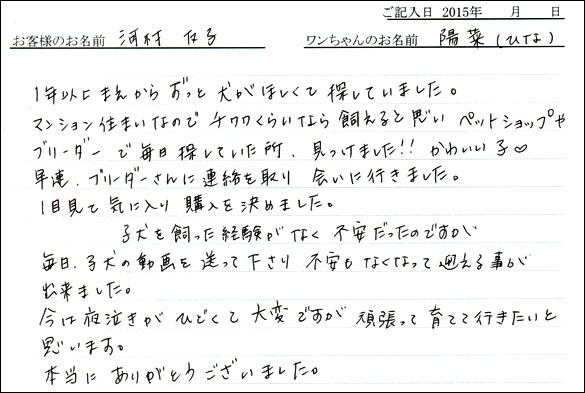 ご記入日 2015年　　月　　日
お客様のお名前 河村　　ワンちゃんのお名前 陽菜(ひな)
1年以上まえからずっと犬がほしくて探していました。
マンション住まいなので チワワくらいなら飼えると思い ペットショップや
ブリーダーで毎日探していた所、見つけました!! かわいい子♡
早速、ブリーダーさんに連絡を取り 会いに行きました。
1目見て気に入り 購入を決めました。
子犬を飼った経験がなく 不安だったのですが
毎日、子犬の動画を送って下さり 不安もなくなって迎える事が
出来ました。
今は夜泣きがひどくて大変ですが 頑張って育てて行きたいと
思います。
本当に ありがとうございました。